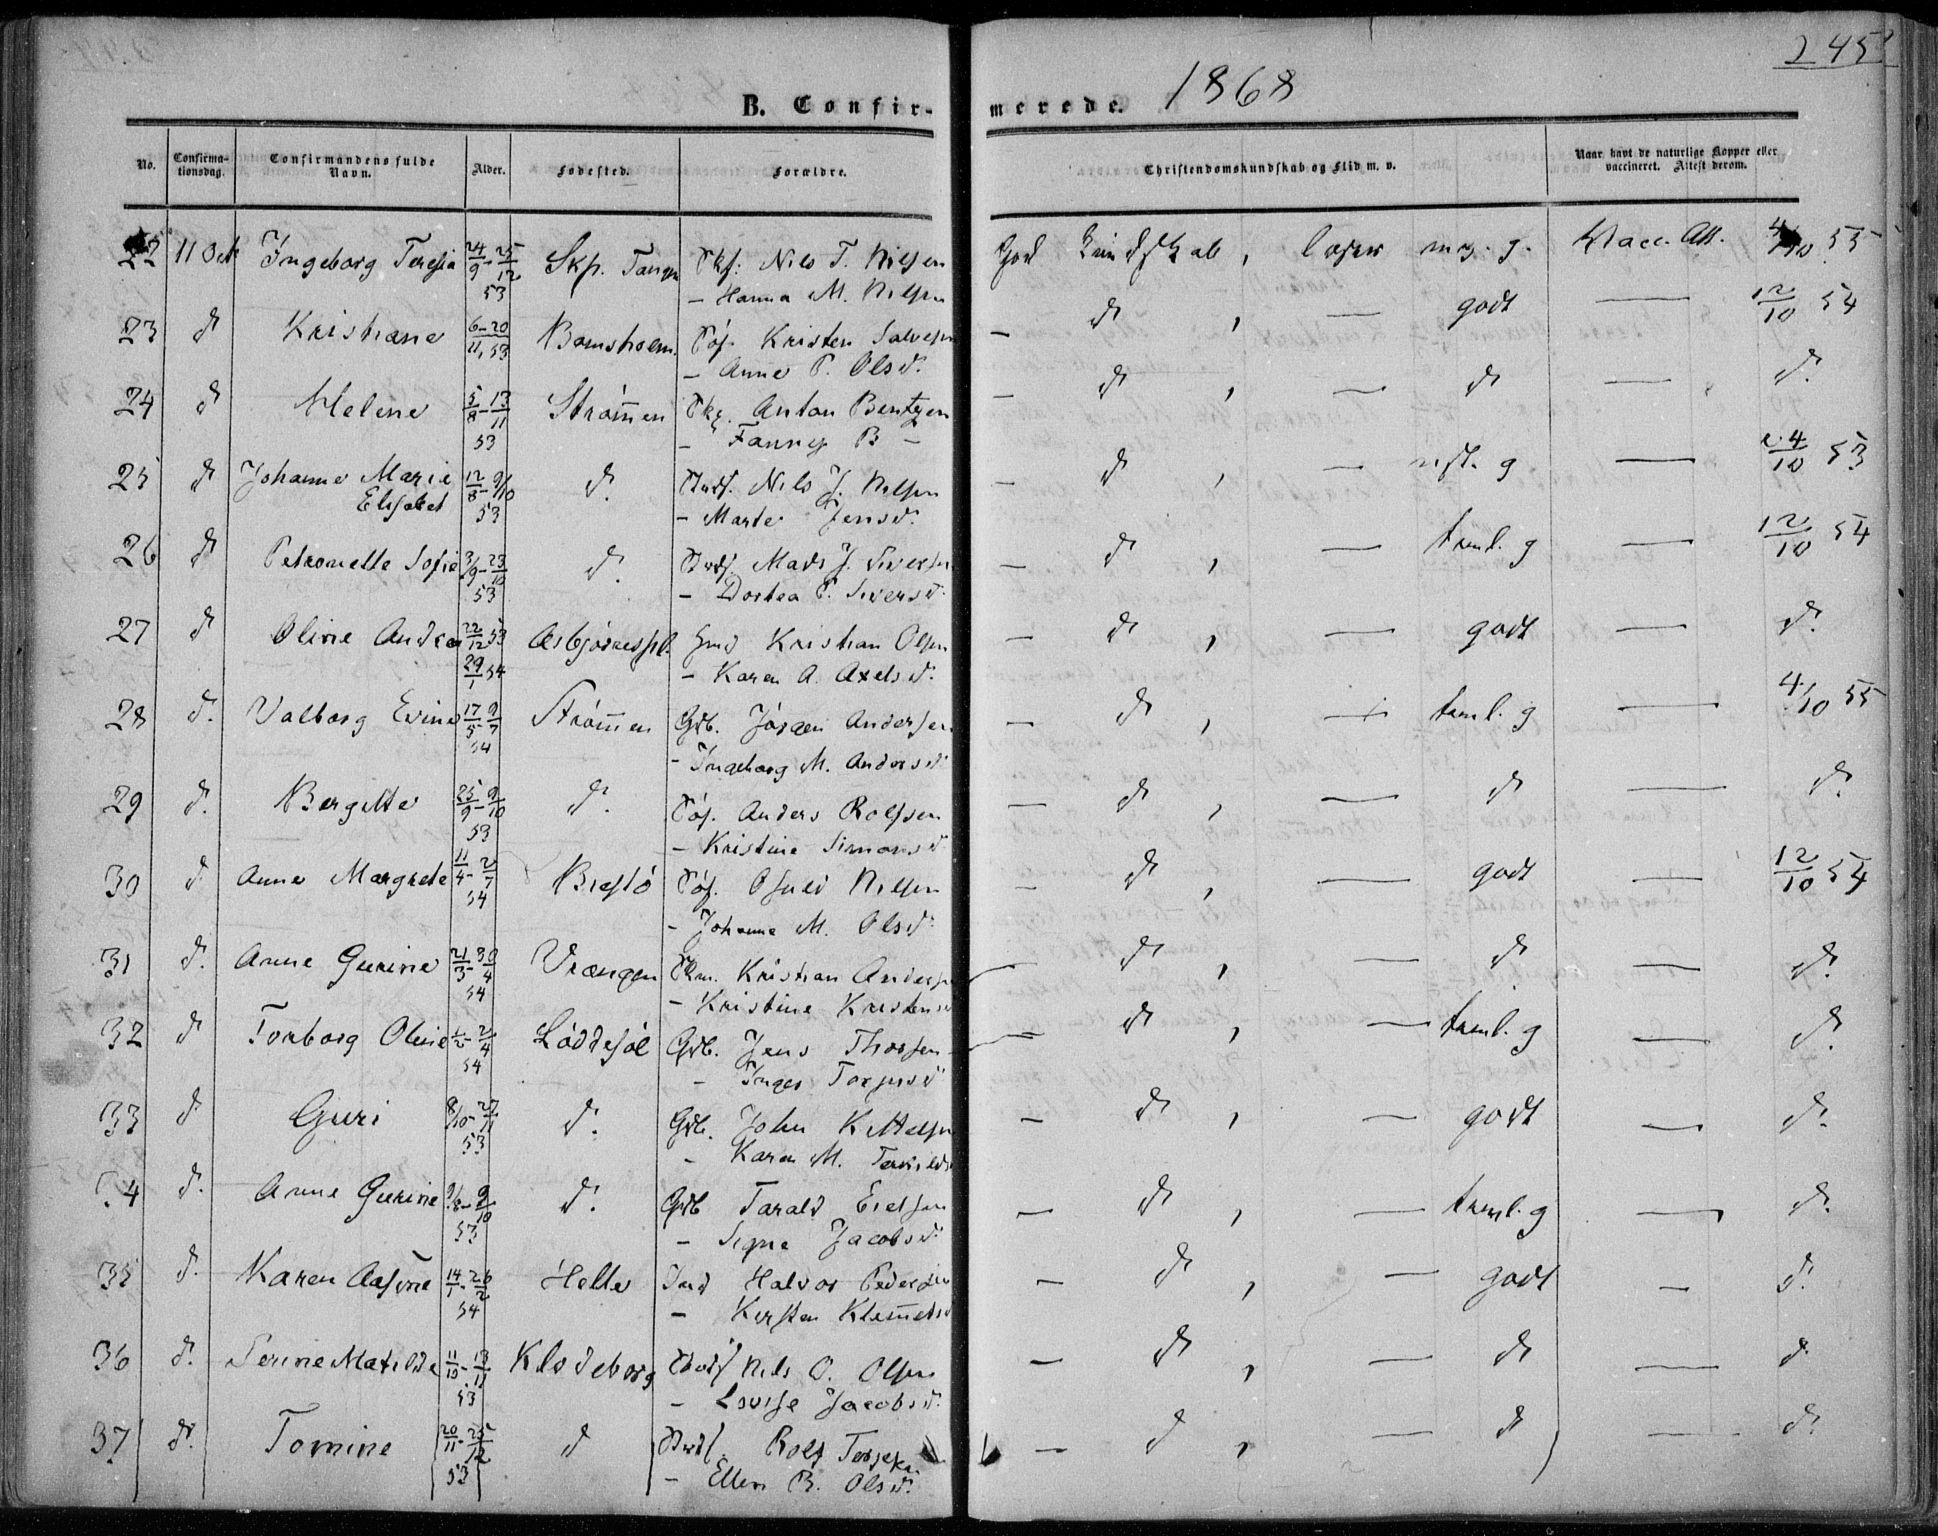 245
1868
B. Confirmerede.
No. Confirmationsdag. Confirmandens fulde Navn. Alder. Fødested. Forældre. Christendomskundskab og Flid m. v. Naar havt de naturlige Kopper eller vaccineret. Attest derom.
22 11 Oct Ingeborg Teresia 24/9-25/12 53 Skp. Tangen Nils T. Nilsen God Kundskab, læser mg. g. Vacc. Att. 4/10 55
- Hanna M. Nilsen
23 d Kristiane 6-20/11, 53 Bomsholm. Søf. Kristen Salvesen - d, — godt — 12/10 54
- Anne P. Olsd.
24 d Helene 5/8-13/11 53 Strømen Anton Bentzen - d, — d — d.
- Fanny B -
25 d Johanne Marie Elisabet 12/8-9/10 53 d. Nils J. Nilsen - d, — g — 24/10 53
- Marte Jensd.
26 d Petronelle Sofie 3/9-23/10 53 d. Mads J. Siversen - d, — teml. g — 12/10 54
- Dortea P. Siversd.
27 d Oline Andrea 22/12 53 29/1 54 Asbjørnespl. Smd Kristian Olsen - d, — godt — d.
- Karen A. Axelsd.
28 d. Valborg Evine 17/5-9/7 54 Strømen Grb. Jørgen Andersen - d, — teml. g — 4/10 55
- Ingeborg M. Andersd
29 d. Bergitte 25/9-9/10 53 d. Søf. Anders Rolfsen - d, — d — d.
- Kristine Simonsd
30 d. Anne Margrete 11/4-2/7 54 Bresfø Søf. Osuld Nilsen - d, — godt — 12/10 54
- Johanne M. Olsd.
31 d. Anne Gurine 21/3-30/4 54 Vrængen Kristian Andersen - d, — d — d.
- Kristine Kristensd
32 d Torborg Oline 2/4 54 Løddesøl Grb. Jens Thorsen - d, — teml. g — d.
- Inger Torjusd
33 d Guri 8/10-27/11 53 d. Grb. John Kittelsen - d, — godt — d.
- Karen M. Terkelsd
34 d. Anne Gurine 9/10 53 d. Grb Tarald - d, — teml. g — d.
- Signe Jacobsd.
35 d. Karen Aasine 14/1-26/2 54 Helle Smd Halvor Pedersen - d, — godt — d.
- Kirsten Klemetsd
36 d. Serine Matilde 11/10-13/11 53 Klodeborg Nils O. Olsen - d, — d — d
- Lovise Jacobsd.
37 d. Tomine 20/11-25/12 53 d Rolf - d, — d — d.
- Ellen B. Olsd.